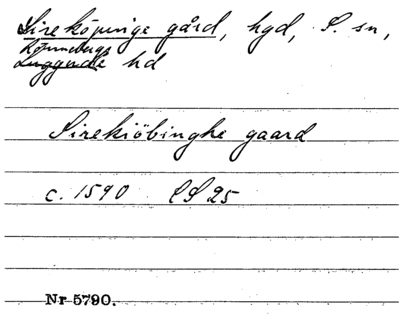 Sireköpinge gård, hgd, S. sn,
Rönnebergs
Luggude hd
Sirekiöbinghe gaard
c. 1590 LS 25
Nr 5790.